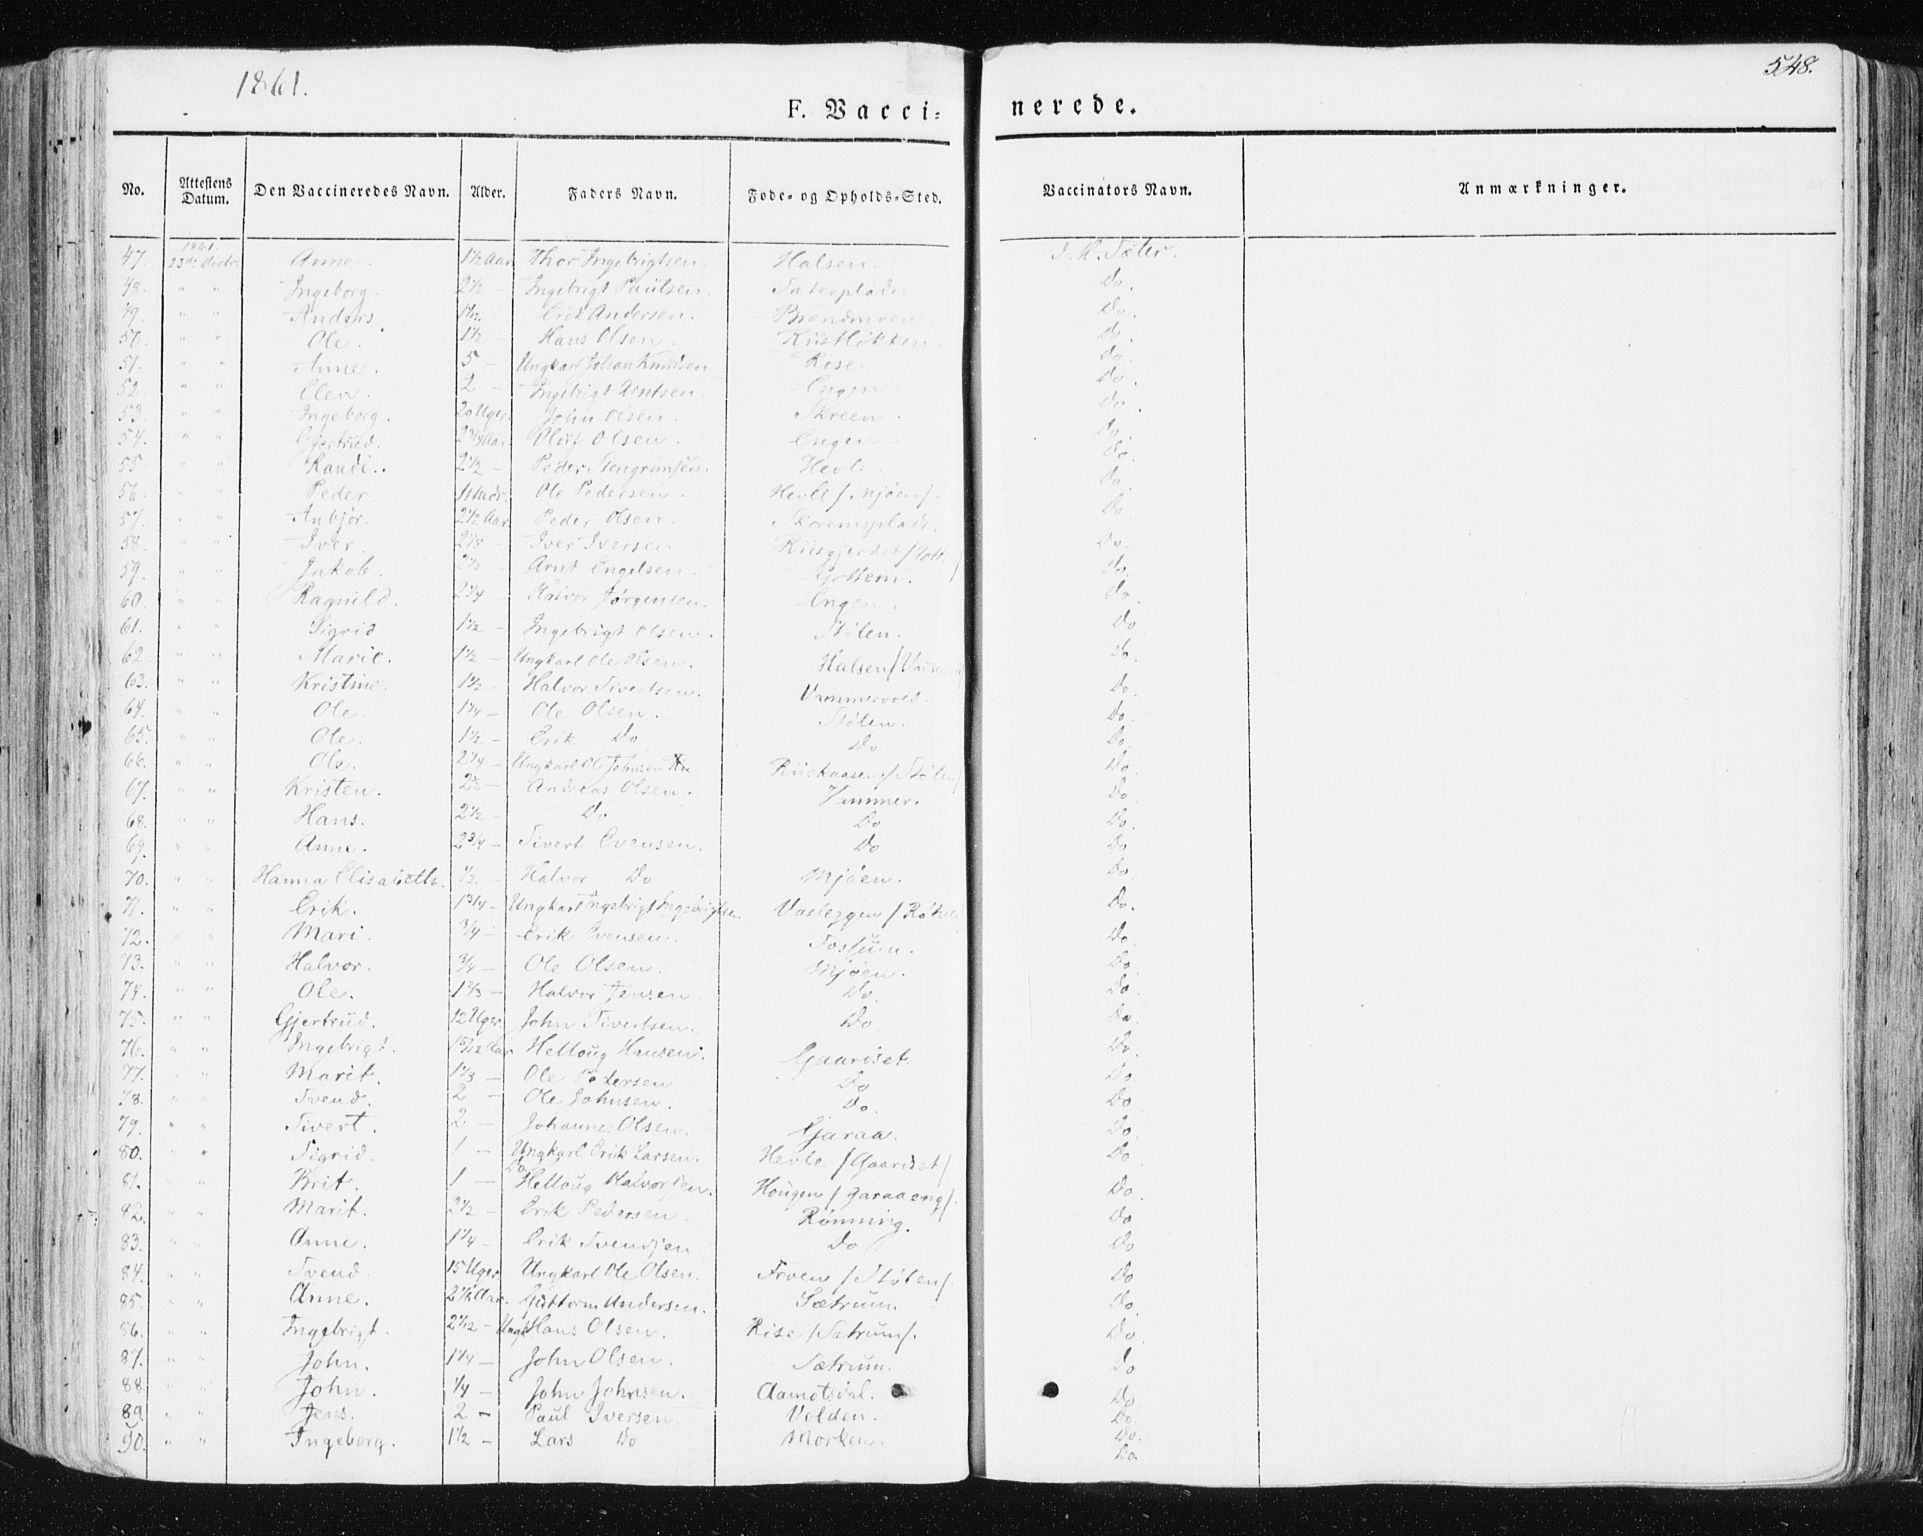 1861.
548.
F. Vaccinerede.
No. Attestens Datum. Den Vaccineredes Navn. Alder. Faders Navn. Fode- og Opholds-Sted. Vaccinators Navn. Anmærkninger.
1861.
47. 23de Decbr. Anne. 1½ Aar Thor Ingebrigtsen. Halsen. J. K. Sæter.
48. " " Ingeborg. 2½ - Ingebrigt Paulsen. Sæterplads. Do.
49. " " Anders. Erik Andersen. Brændmoen. Do.
50. " " Ole. 1½ - Hans Olsen. Do.
51. " " Anne. 5 - Ungkarl Johan Knudsen Rise. Do.
52. " " 2 - Ingebrigt Arntsen. Engen Do.
53. " " Ingeborg. 20 Uger. John Olsen. Skreen. Do.
54. " " Gjertrud. Oluf Olsen. Engen. Do.
55. " " Randi. 2½ - Peder Hevle. Do.
56. " " Peder. Ole Pedersen. Hevle / Mjøen /. Do.
57. " " Anbjør. 2½ Aar Peder Olsen. Skoremsplads. Do.
58. " " Iver. Iver Iversen Do.
59. " " Jakob. 2½ - Arnt Engelsen Gottem. Do.
60. " " Ragnild. 2¼ - Halvor Jørgensen. Engen. Do.
61. " " Sigrid 1½ - Ingebrigt Olsen. Stølen. Do
62. " " Marie. 1½ - Ungkarl Ole Olsen. Halsen / Do.
63. " " Kristine. 1½ - Halvor Sivertsen. Vammervold. Do.
64. " " Ole. 1¼ - Ole Olsen. Stølen. Do.
65. " " Ole. 1½ - Erik Do Do Do.
66. " " Ole. 2¼ - Ungkarl Ole Johnsen Riiskaasen / Stølen / Do.
67. " " Kristen. Andreas Olsen. Vammer. Do
68. " " Hans. 2½ - Do Do Do.
69. " " Anne. 2¾ - Sivert Evensen. Do Do
70. " " Hanna Elisabeth. ½ - Halvor Do Mjøen. Do
71. " " Erik. 1¾ - Ungkarl Ingebrigt Ingebrigtsen Vasleggen / Do.
72. " " Mari. ¾ - Erik Evensen. Fossum. Do.
73. " " Halvor. ¾ - Ole Olsen. Mjøen. Do.
74. " " Ole. 1⅔ - Halvor Jensen. Do. Do.
75. " " Gjertrud. 12 Uger. John Sivertsen. Do. Do.
76. " " Ingebrigt. 1 5/12 Aar Helloug Hansen. Gaardset. Do.
77. " " Marit. 1⅓ - Ole Pedersen Do Do
78. " " Svend. 2 - Ole Johnsen. Do. Do
79. " " Sivert. 2 - Johannes Olsen. Gjaraa. Do
80. " " Sigrid. 1 - Ungkarl Erik Larsen. Hevle / Gaardset / Do
81. " " Brit. 1 - Do Helloug Halvorsen. Hougen / Garaaeng /. Do
82. " " Marit. 2½ - Erik Pedersen. Rønning. Do
83. " " Anne. 1¼ - Erik Svendsen Do Do
84. " " Svend. 15 Uger Ungkarl Ole Olsen. Froen / Stølen /. Do
85. " " Anne. Guttorm Andersen. Sætrum. Do.
86. " " Ingebrigt. Ungk. Hans Olsen. Rise / Sætrum /. Do
87. " " John. 1¼ - John Olsen. Sætrum. Do
88. " " John. ¼ - John Johnsen. Aamotsdal. Do
89. " " Jens. 2 - Paul Iversen. Volden. Do.
90. " " Ingeborg. 1½ - Lars Do Morken. Do.
Do